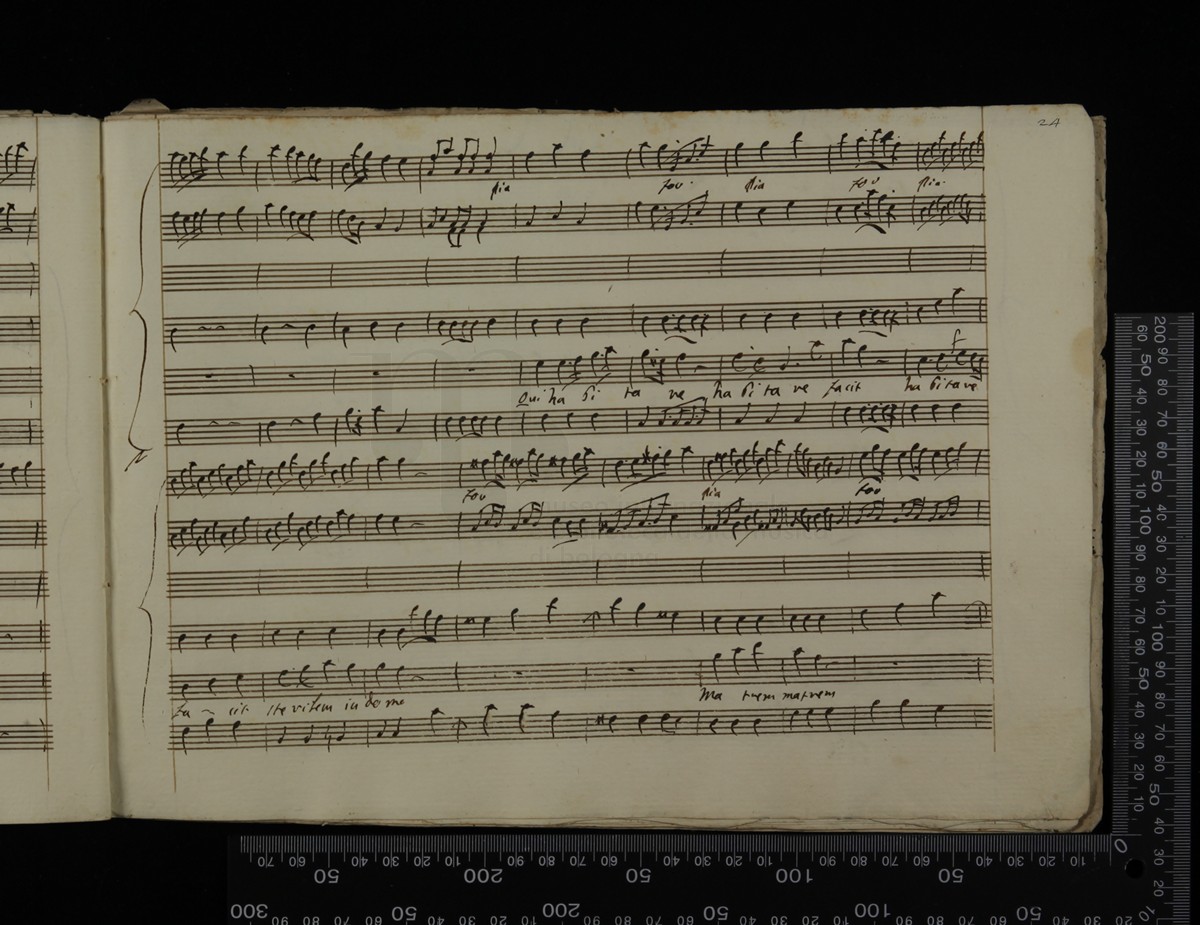 24
pia for. pia for pia.
f
Qui ha bi ta re ha bi ta re facit ha bi ta re
for pia for
fa cit sterilem in do mo
Ma trem matrem